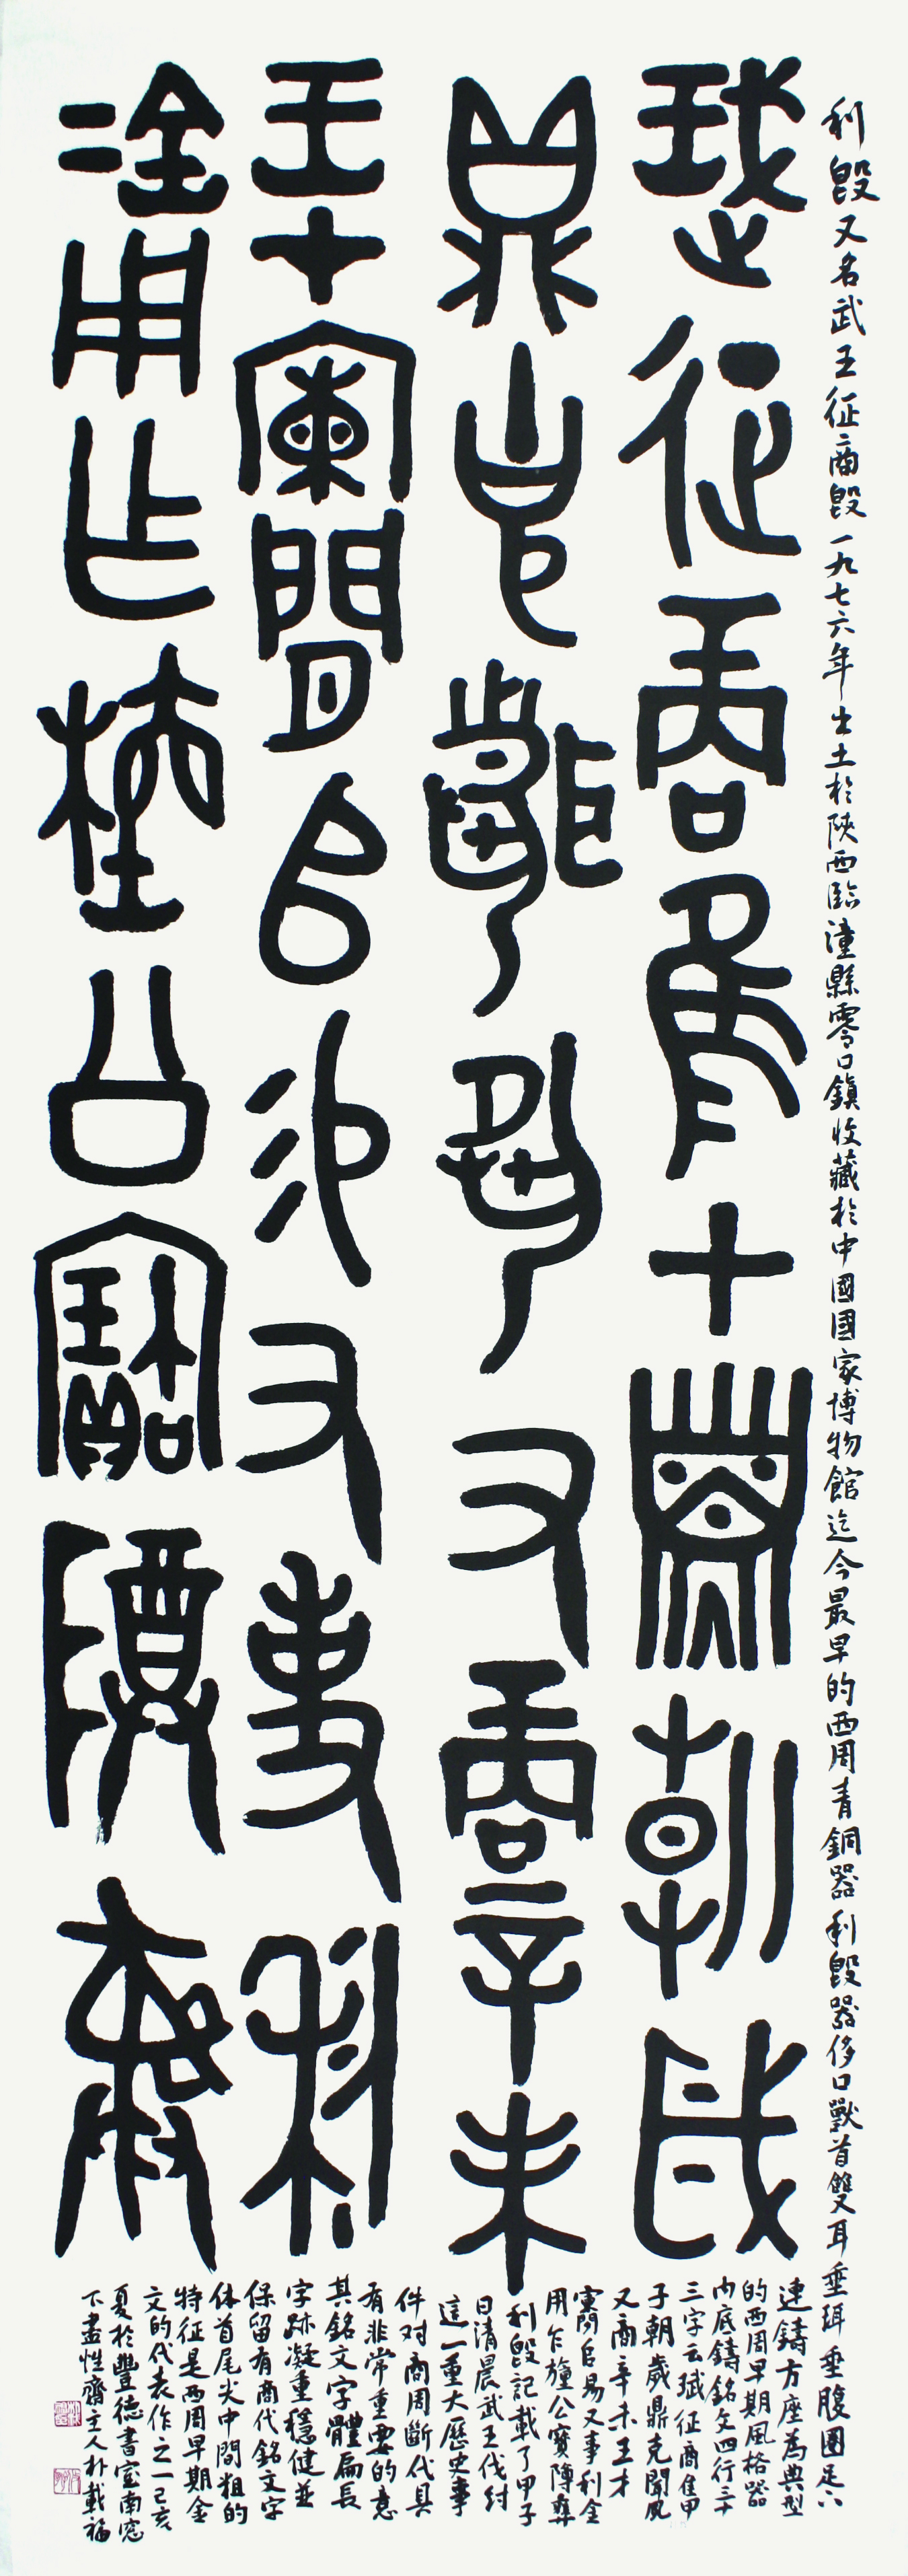 利𣪘又名武王征商𣪘一九七六年出土於陝西臨潼縣零口鎮收藏於中國國家博物館迄今最早的西周青銅器利𣪘器侈口獸首雙耳垂珥垂腹圈足下
珷征商隹甲子朝歲
鼎克聞夙又商辛未
王才䦨𠂤易又事利
金用乍旜公寶障彝
連鑄方座為典型
的西周早期風格器
內底鑄銘文四行三十
三字云珷征商隹甲
子朝歲鼎克聞夙
又商辛未王才
䦨𠂤易又事利金
用乍旜公寶障彝
利𣪘記載了甲子
日清晨武王伐紂
這一重大歷史事
件对商周斷代具
有非常重要的意
其銘文字體扁長
字跡凝重穩健並
保留有商代銘文字
体首尾尖中間粗的
特征是西周早期金
文的代表作之一己亥
夏於豐德書室南窓
下盡性齋主人朴載福